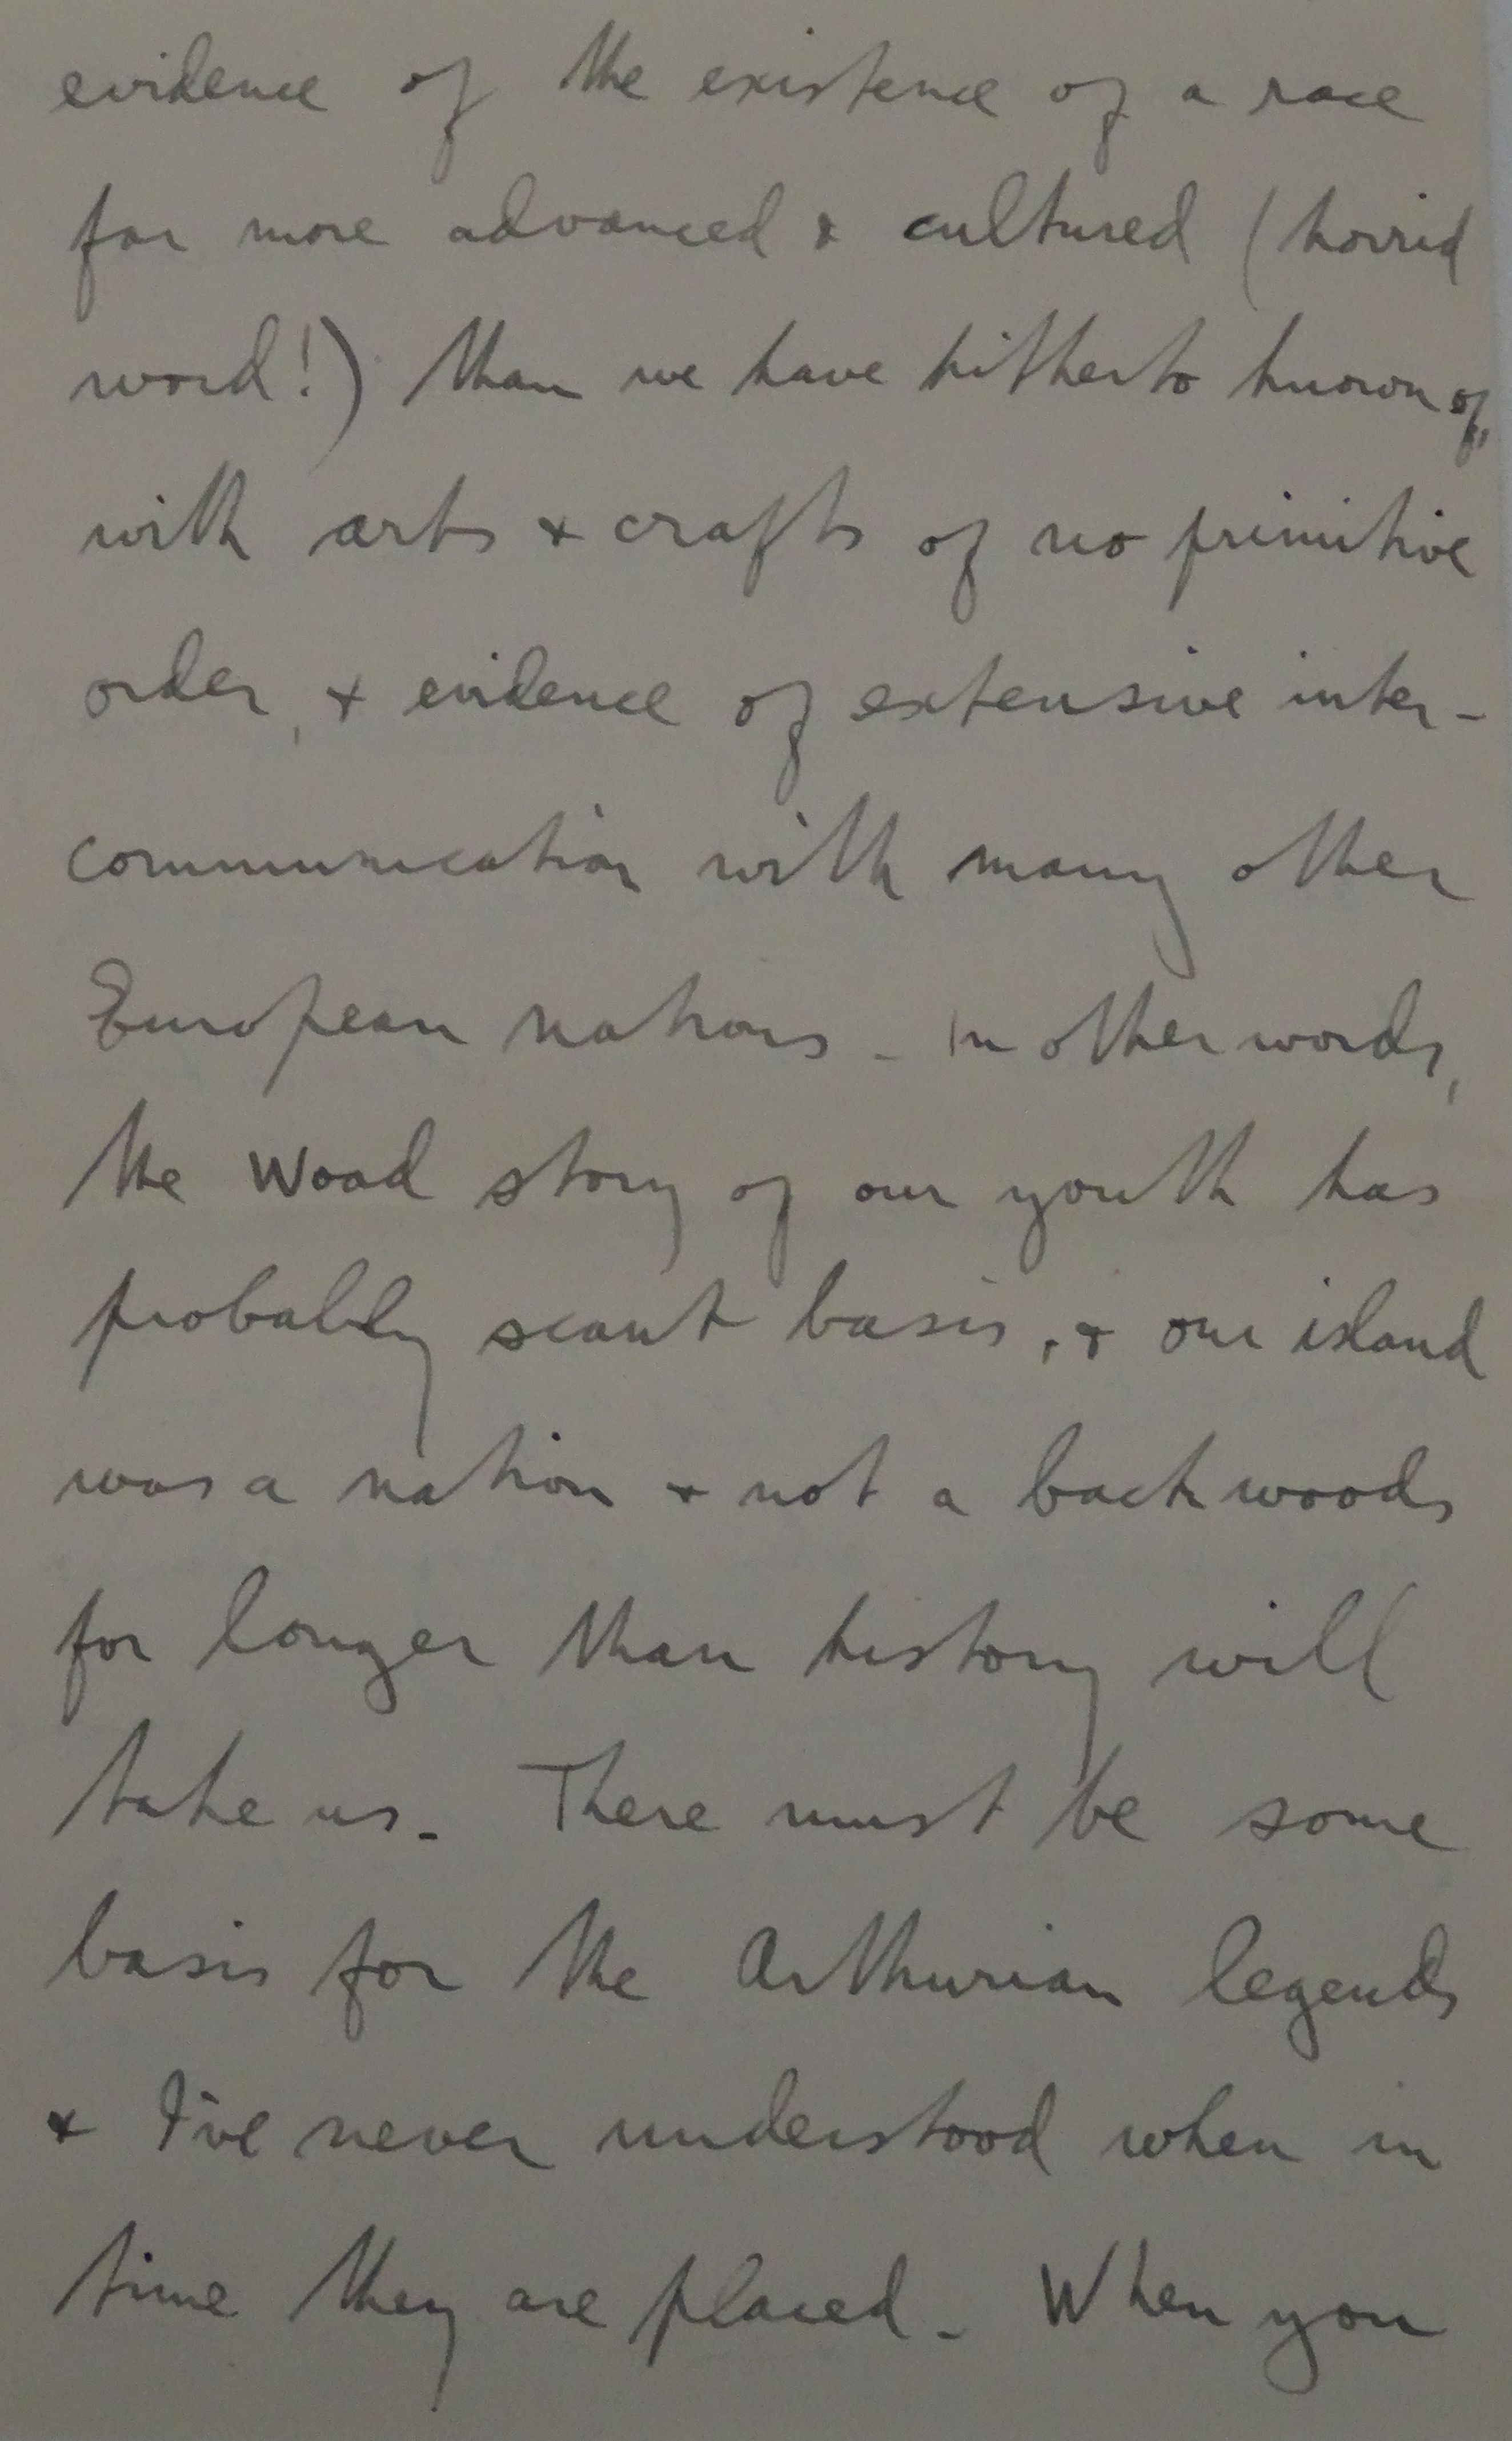 evidence of the existence of a race
far more advanced & cultured (horrid
word!) than we have hitherto known of,
with arts & crafts of no primitive
order, & evidence of extensive inter-
communication with many other
European nations - In other words,
the Woad story of our youth has
probably scant basis, & our island
was a nation & not a backwoods
for longer than history will
take us. There must be some
basis for the Arthurian legends
& I've never understood when in
time they are placed. When you